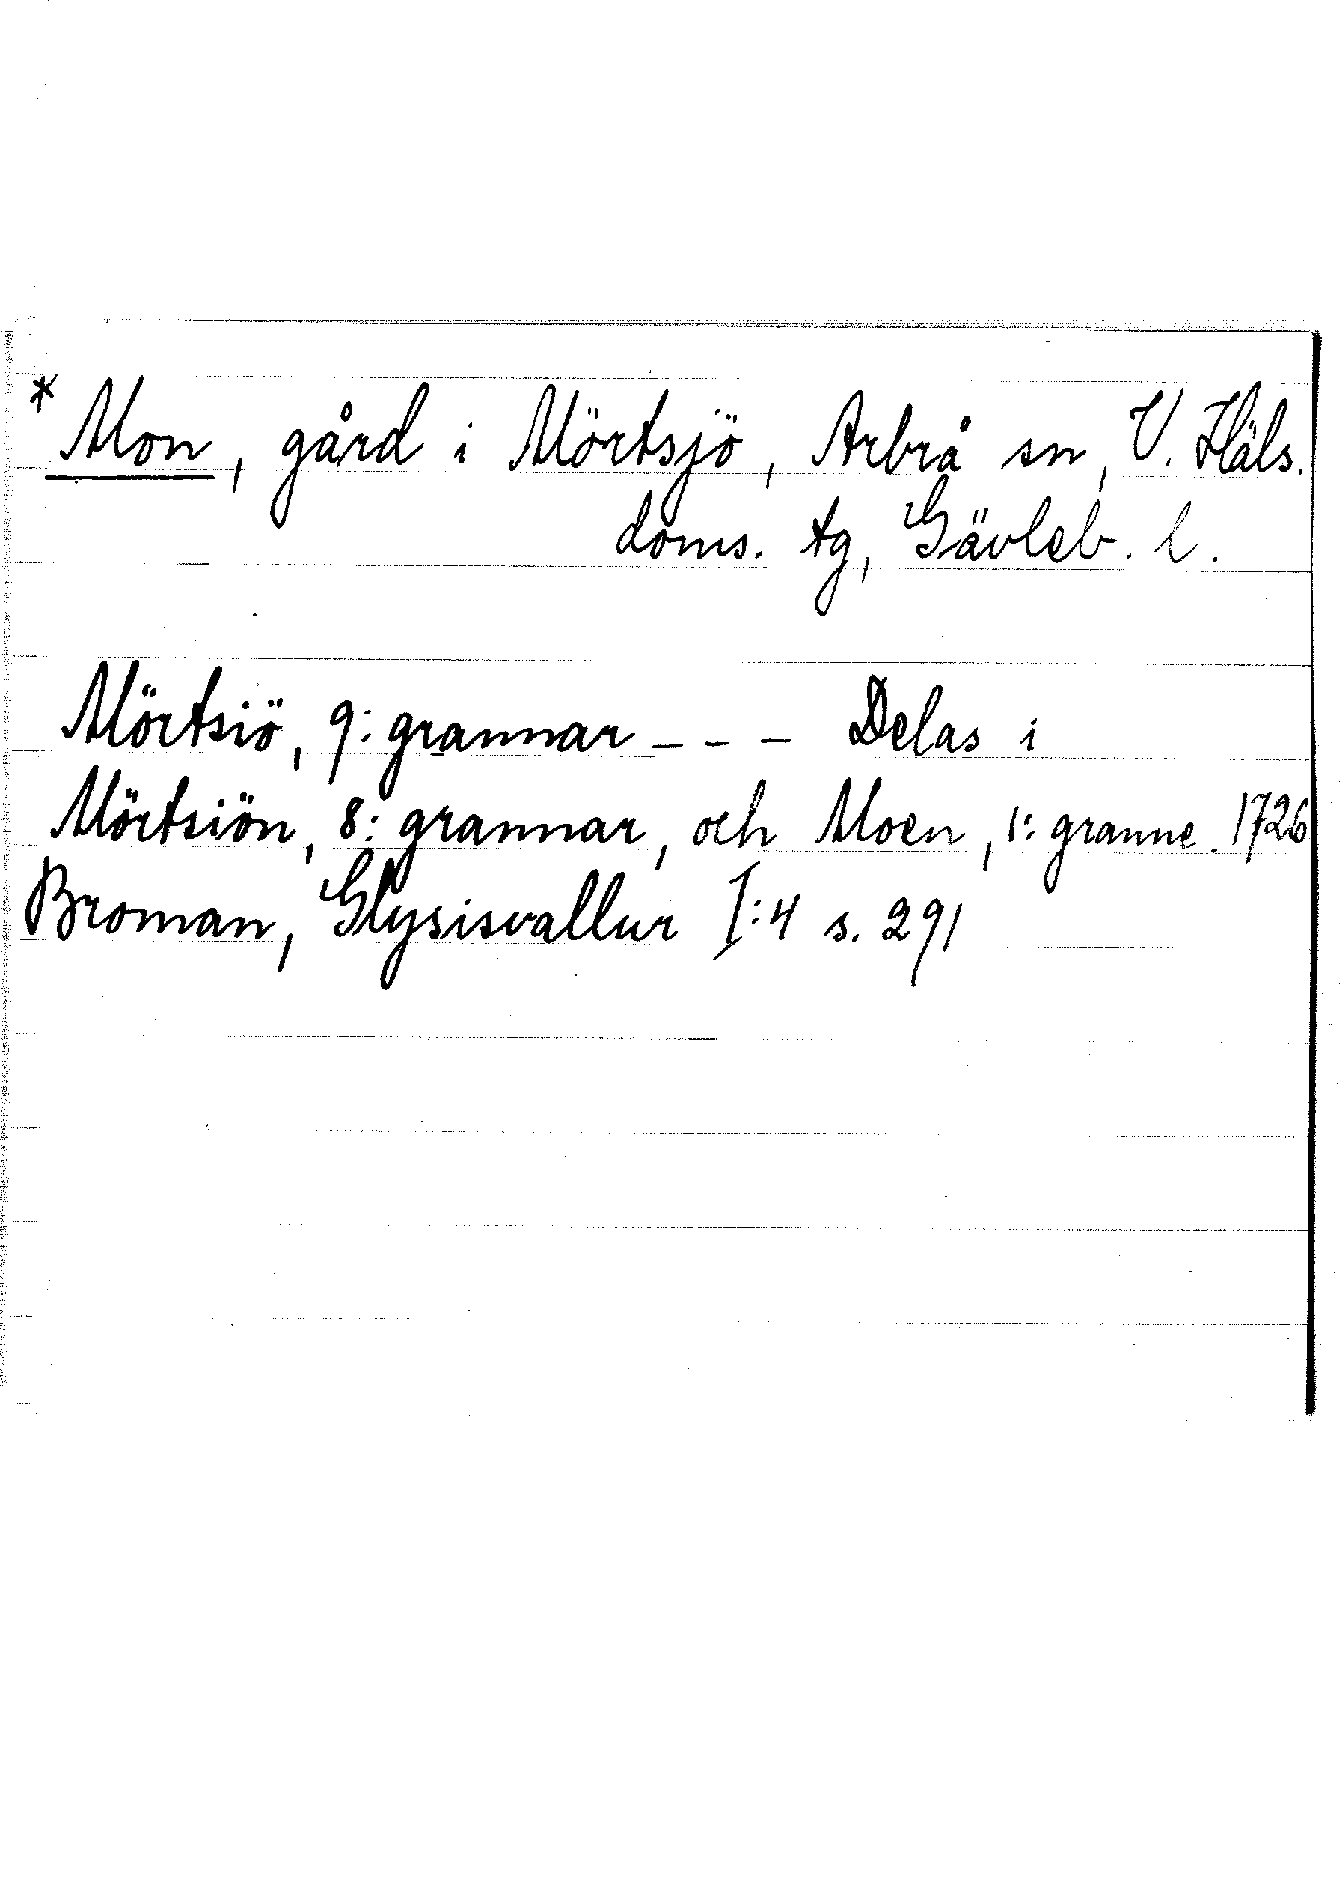 * Mon, gård i Mörtsjö, Arbrå sn, V. Häls.
doms. tg, Gävleb. l.
Mörtsiö, 9: grannar – – – Delas i
Mörtsiön, 8: grannar, och Moen, 1: granne. 1726
Broman, Glysisvallur I:4 s. 291